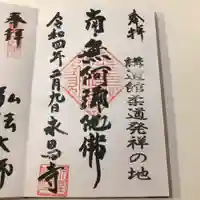 奉拝
講道館柔道発祥の地
南無阿弥陀佛
令和四年二月九日
永昌寺
奉拝
弘法大師